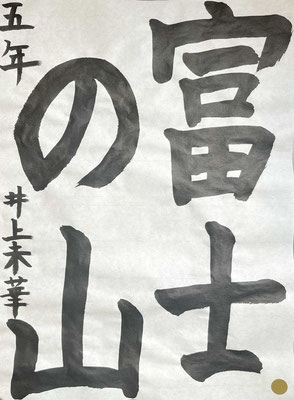 富士
の山
五年
井上未華